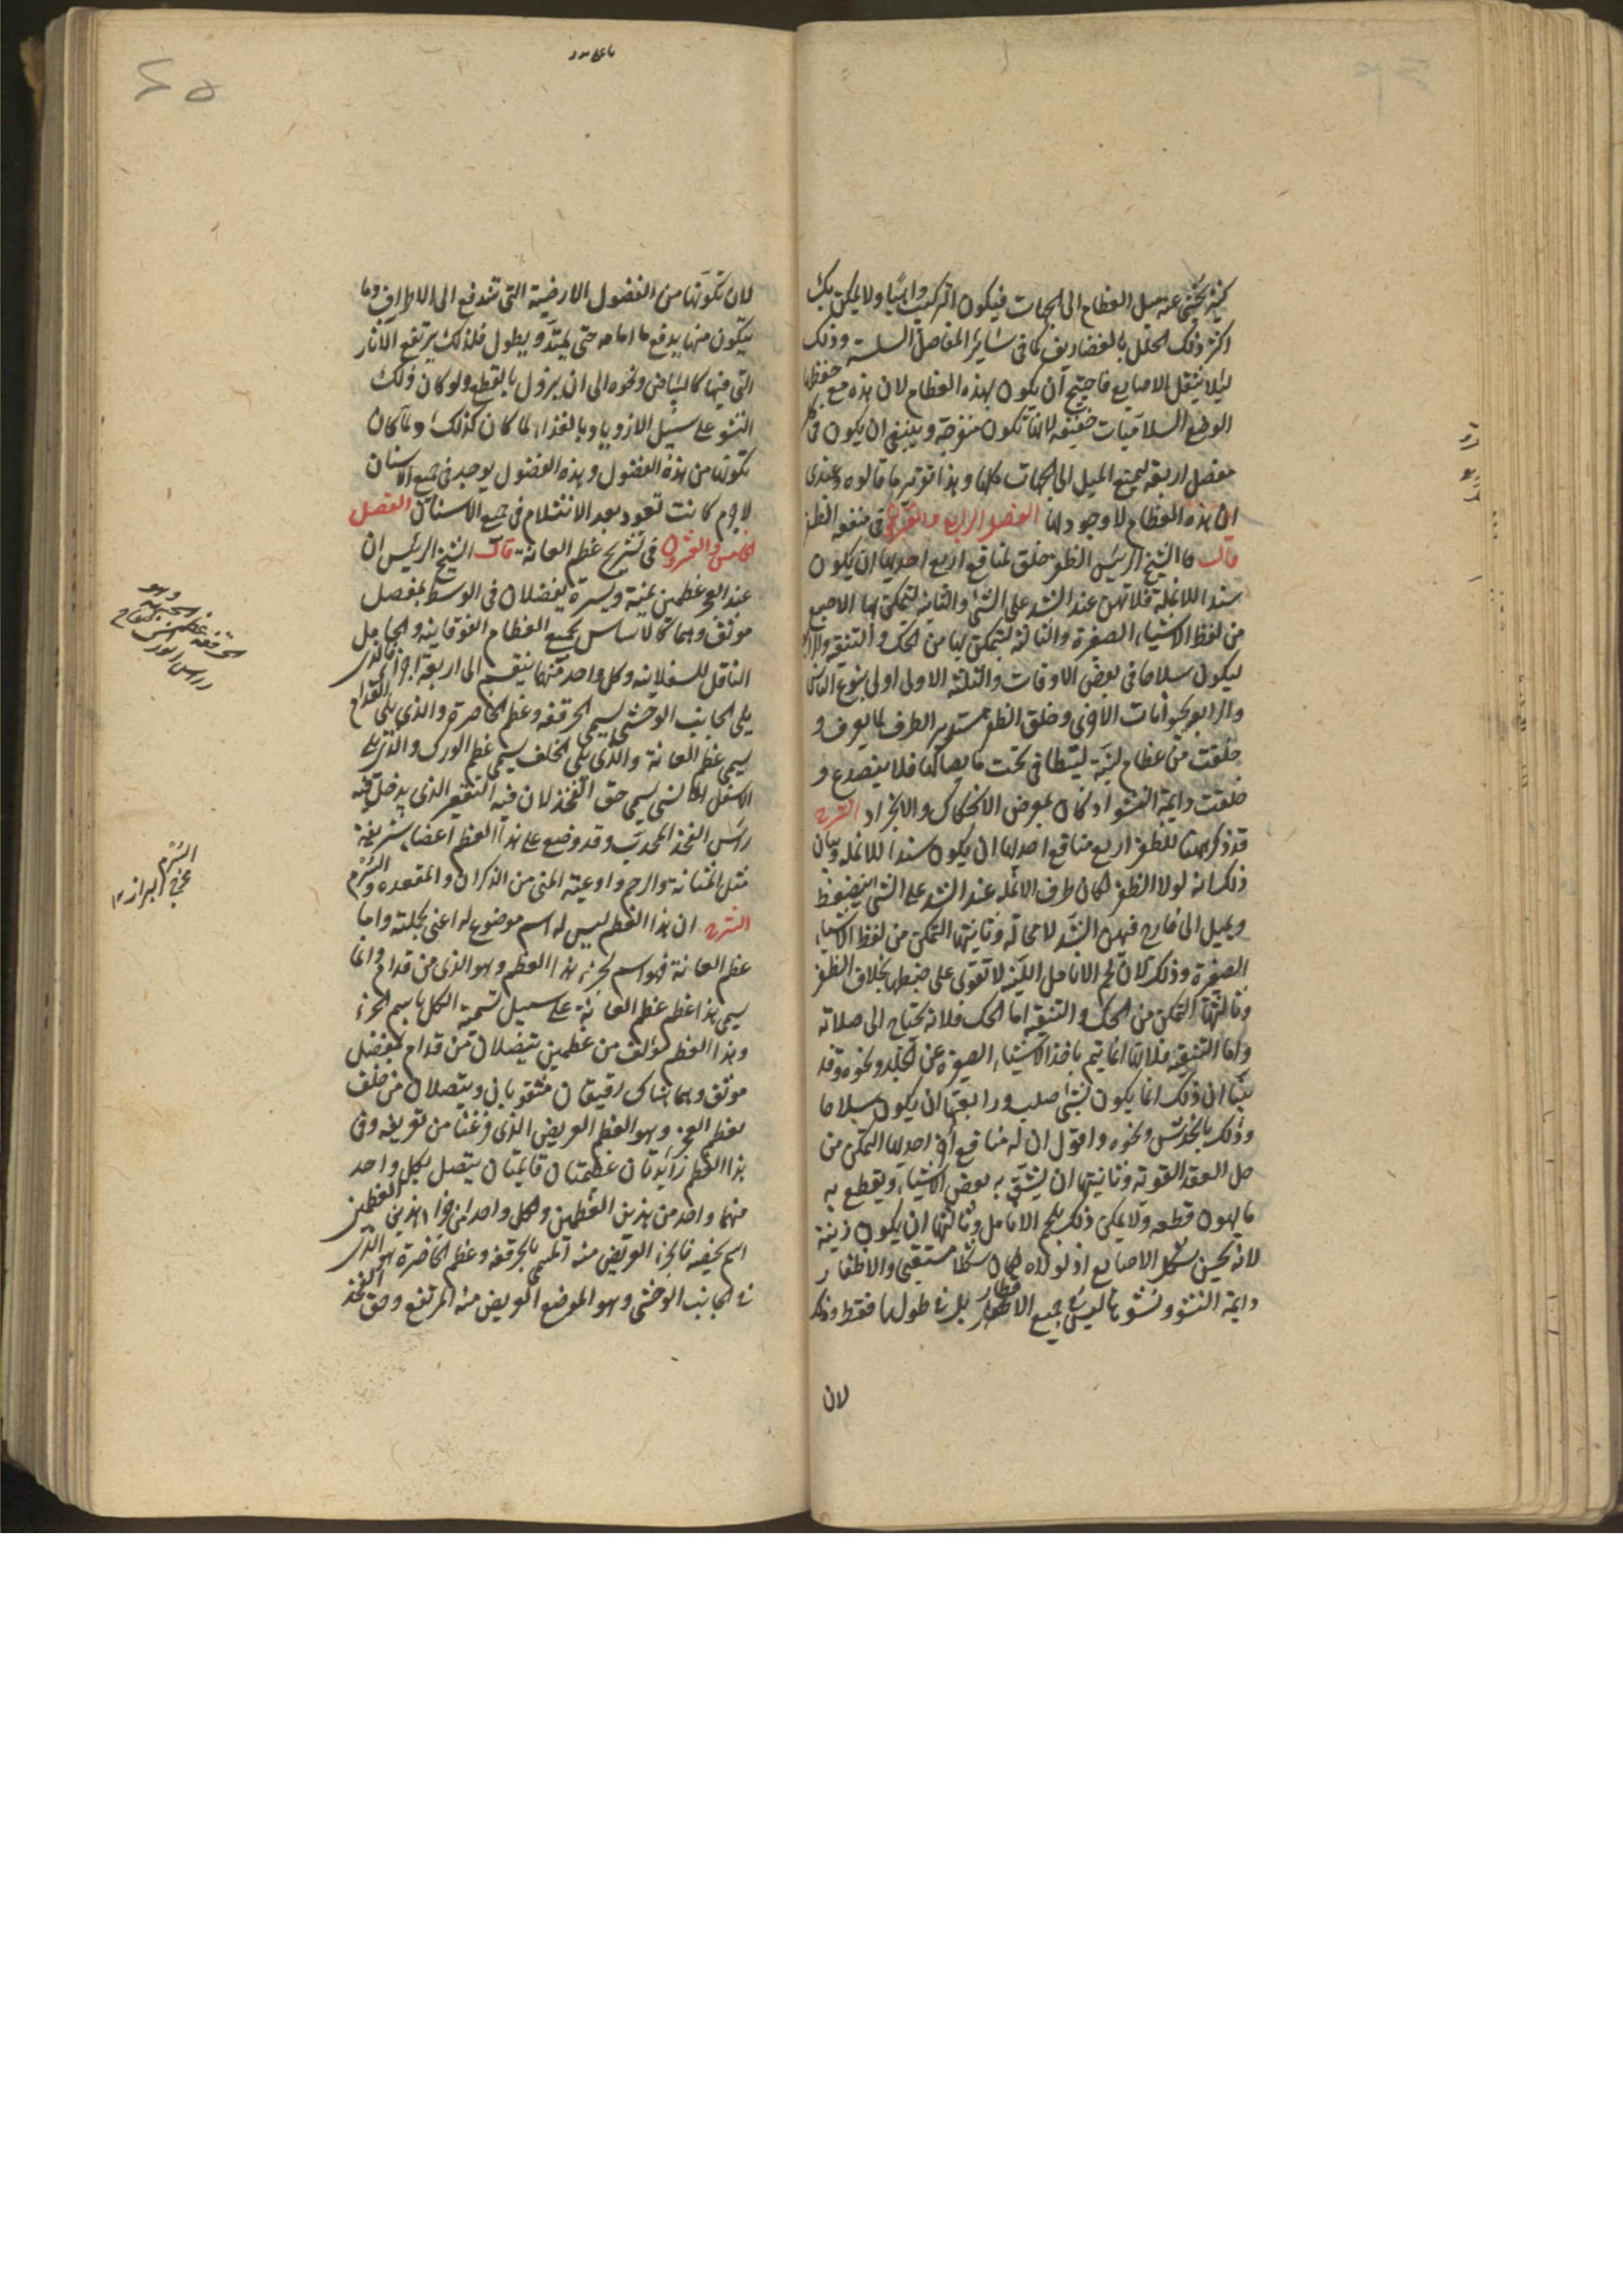 كثيرة يخشى عنه ميل العظام الى الجهات فيكون التركيب واهيًا ولا يمكن
اكثر ذلك الخلل بالغضاريف كما في سائر المفاصل السلسة وذلك
ليلا يثقل الاصابع فاحتيج ان يكون بهذه العظام لان هذه مع حفظها
الوضع السلاميات خفيفة لانها تكون متفرجة وينبغي ان يكون في كل
مفصل اربعة ليمنع الميل الى الجهات كلها وهذا توتر ما قالوه وعندي
ان هذه العظام لا وجود لها الفصل الرابع والعشرون في منفعة الظفر
قال الشيخ الرئيس الظفر خلق لمنافع اربع احديها ان يكون
سندا للانملة فلا تهن عند الشد على الشئ والثانية ليتمكن بها الاصبع
من لقط الاشياء الصغيرة والثالثة ليتمكن بها من الحك والتنقية والرابعة
ليكون سلاحا في بعض الاوقات والثلثة الاولى اولى بنوع الناس
والرابع بحيوانات الاخرى وخلق الظفر مستدير الطرف لما يعرف و
خلقت من عظام لينة ليتطامن تحت ما يصاكها فلا ينصدع و
خلقت دايمة النشو اذ كان يعرض الانحكاك والانجراد الشرح
قد ذكر ههنا للظفر اربع منافع احديها ان يكون سندا للانملة وبيان
ذلك انه لولا الظفر لكان طرف الانملة عند الشد على الشئ ينضغط
ويميل الى خارج فيهن الشد لا محالة وثانيتها التمكن من لقط الاشياء
الصغيرة وذلك لان لحم الانامل اللينة لا تقوى على ضبطها بخلاف الظفر
وثالثتها التمكن من الحك والتنقية اما الحك فلانه يحتاج الى صلابة
واما التنقية فلانها انما يتم باخذ الاشياء الصغيرة عن الجلد ونحوه وقد
بينا ان ذلك انما يكون بشئ صلب ورابعتها ان يكون سلاحا
وذلك بالخدش ونحوه واقول ان له منافع أخر احديها التمكن من
حل العقد القوية وثانيتها ان يشق به بعض الاشياء ويقطع به
ما يهون قطعه ولا يمكن ذلك بلحم الانامل وثالثتها ان يكون زينة
لانه يحسن شكل الاصابع اذ لولاه لكان شكلا مستقبح والاظفار
دايمة النشو ونشوها ليس في جميع الاقطار بل في طولها فقط وذلك
لان
لان تكونها من الفضول الارضية التي تندفع الى الاطراف وما
يتكون منها يدفع ما امامه حتى يمتد ويطول فلذلك يرتفع الآثار
التي فيها كالبياض ونحوه الى ان يزول بالقطع ولو كان ذلك
النشو على سبيل الازدياد بالغذاء لما كان كذلك ولما كان
تكونها من هذه الفضول وهذه الفضول يوجد في جميع الاسنان
لا جرم كانت تعود بعد الانثلام في جميع الاسنان الفصل
الخامس والعشرون في تشريح عظم العانة قال الشيخ الرئيس ان
عند العجز عظمين يمنة ويسرة يفصلان في الوسط بمفصل
موثق وهما كالاساس لجميع العظام الفوقانية والحامل
الناقل للسفلانية وكل واحد منهما ينقسم الى اربعة اجزاء فالذي
يلي الجانب الوحشي يسمى الحرقفة وعظم الخاصرة والذي يلي القدام
يسمى عظم العانة والذي يلي الخلف يسمى عظم الورك والذي يلي
الاسفل الانسي يسمى حق الفخذ لان فيه التقعير الذي يدخل فيه
راس الفخذ المحدب وقد وضع على هذا العظم اعضاء شريفة
مثل المثانة والرحم واوعية المني من الذكران والمقعدة والسرم
الشرح ان هذا العظم ليس له اسم موضوع له اعني بجملته واما
عظم العانة فهو اسم لجزء هذا العظم وهو الذي من قدام وانما
سمي هذا عظم عظم العانة على سبيل تسمية الكل باسم الجزء
وهذا العظم مؤلف من عظمين يتصلان من قدام بمفصل
موثق وهما هناك رقيقان مثقوبان ويتصلان من خلف
بعظم العجز وهو العظم العريض الذي فرغنا من تعريفه وفي
هذا العظم زايدتان عظيمتان قايمتان يتصل بكل واحد
منهما واحد من هذين العظمين ولكل واحد من اجزاء هذين العظمين
اسم يخصه فالجزء العريض منه المسمى بالحرقفة وعظم الخاصرة هو الذي
في الجانب الوحشي وهو الموضع العريض منه المرتفع وحق الفخذ
السرم
مخرج البراز